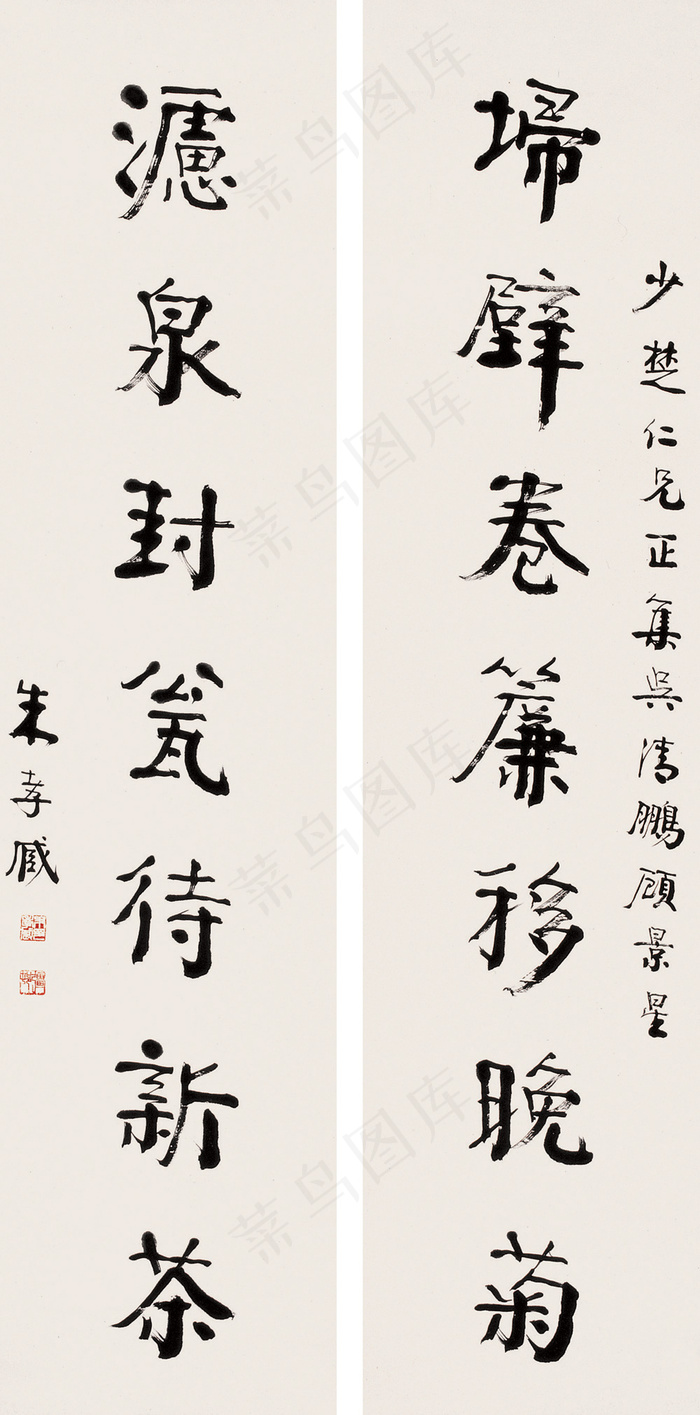 少楚仁兄正集吳清鵬顧景星
埽壁卷簾移晚菊
濾泉封瓮待新茶
朱孝臧
菜鸟图库
菜鸟图库
菜鸟图库
菜鸟图库